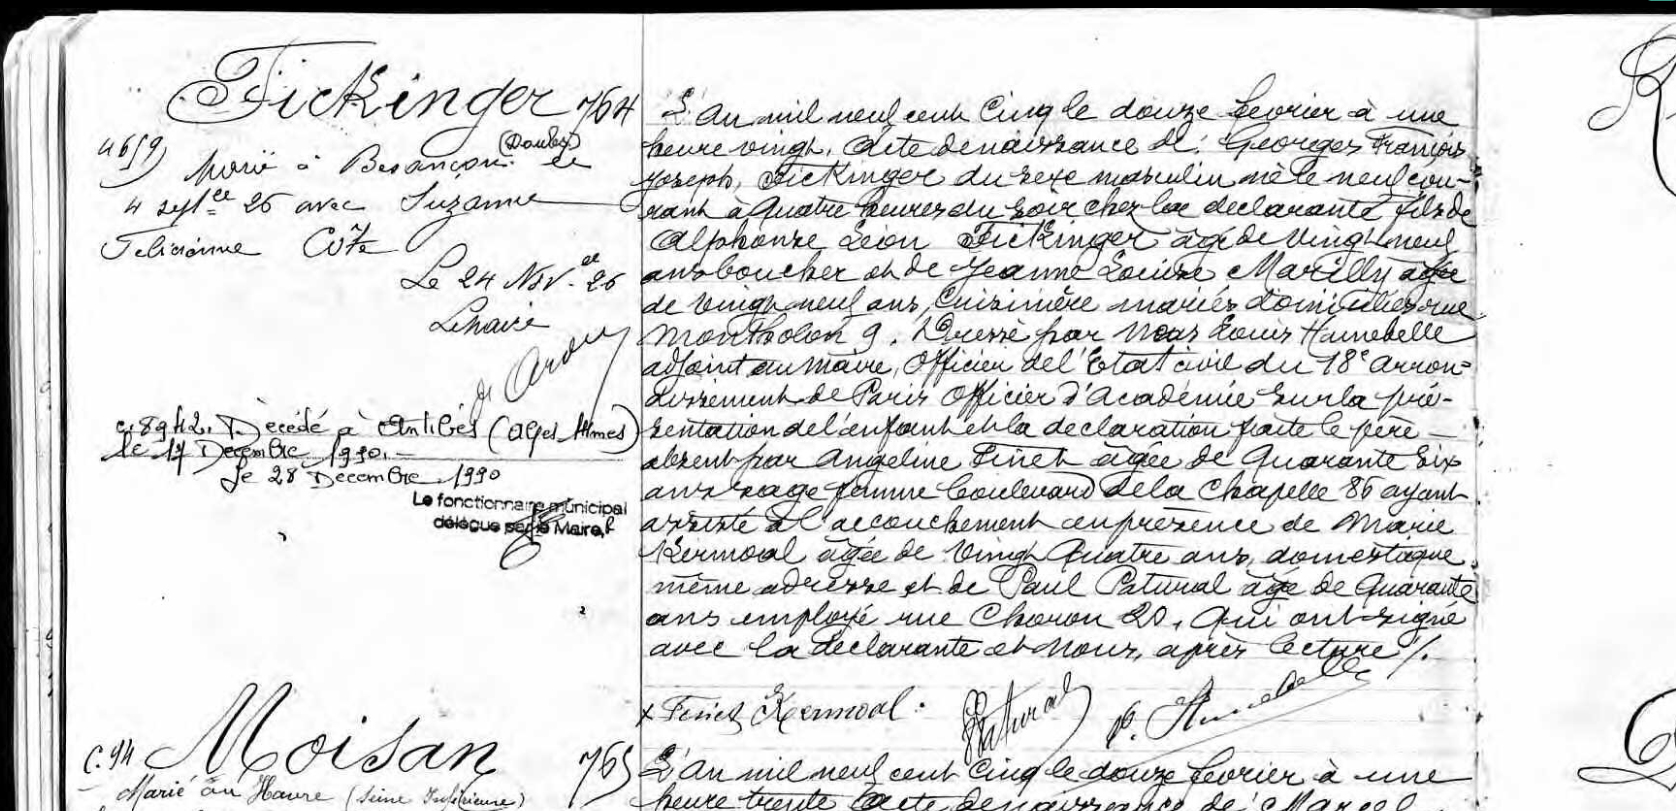 Fickinger 764
4659
Marié à Besançon (Doubs) le
4 sept. 26 avec Suzanne
Felicienne Côte
Le 24 Nov. 26
Le maire
c. 8942. Décédé à Antibes (Alpes Atmes)
le 17 Decembre 1990. _
le 28 Decembre 1990
Le fonctionnaire municipal
délégué par le Maire,
L'An mil neuf cent Cinq le douze fevrier à une
heure vingt. Acte de naissance de: Georges François
Joseph, Fickinger du sexe masculin né le neuf cou-
rant à quatre heures du soir chez la declarante fils de
Alphonse Léon Fickinger âgé de vingt neuf
ans boucher et de Jeanne Louise Marilly âgée
de vingt neuf ans, Cuisinière mariés domiciliés rue
Montholon 9. Dressé par Nous Louis Hunebelle
adjoint au maire, Officier de l'Etat civil du 18e arron-
dissement de Paris Officier d'Académie Sur la pré-
sentation de l'enfant et la declaration faite le père
absent par Angeline Finet âgée de Quarante Six
ans sage femme boulevard de la Chapelle 86 ayant
assisté à l'accouchement en présence de Marie
Kermoal âgée de Vingt Quatre ans, domestique
même adresse et de Paul Patural âgé de Quarante
ans employé rue Choron 20. Qui ont signé
avec la declarante et Nous, après lecture /.
x Finet Kermoal. Patural Hunebelle
c. 94 Moisan 765
Marié au Havre (Seine Inférieure)
L'An mil neuf cent Cinq le douze fevrier à une
heure trente Acte de naissance de: Marcel